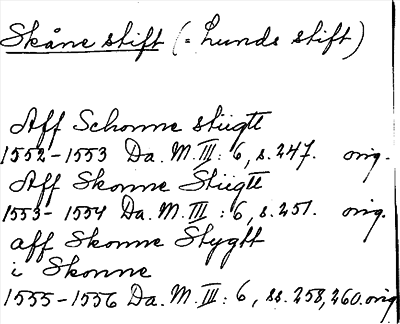 Skåne stift (= Lunds stift)
Aff Schonne stiigtt
1552-1553 Da. M. III: 6, s. 247. orig.
Aff Skonne Stiigtt
1553-1554 Da. M. III: 6, s. 251. orig.
aff Skonne Stygtt
i Skonne
1555-1556 Da. M. III: 6, ss. 258, 260. orig.